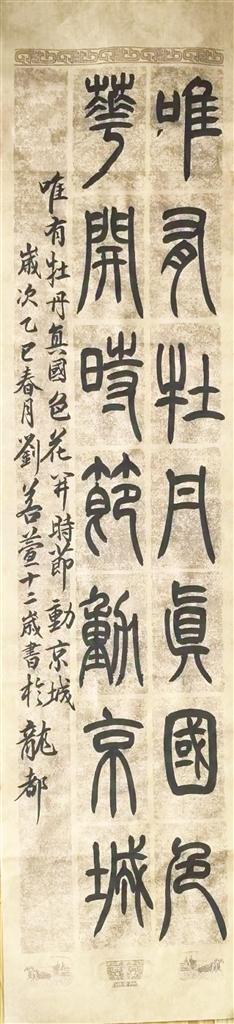 唯有牡丹真國色
華開時節動京城
唯有牡丹真國色花开時節動京城
歲次乙巳春月劉若萱十二歲書於龍都